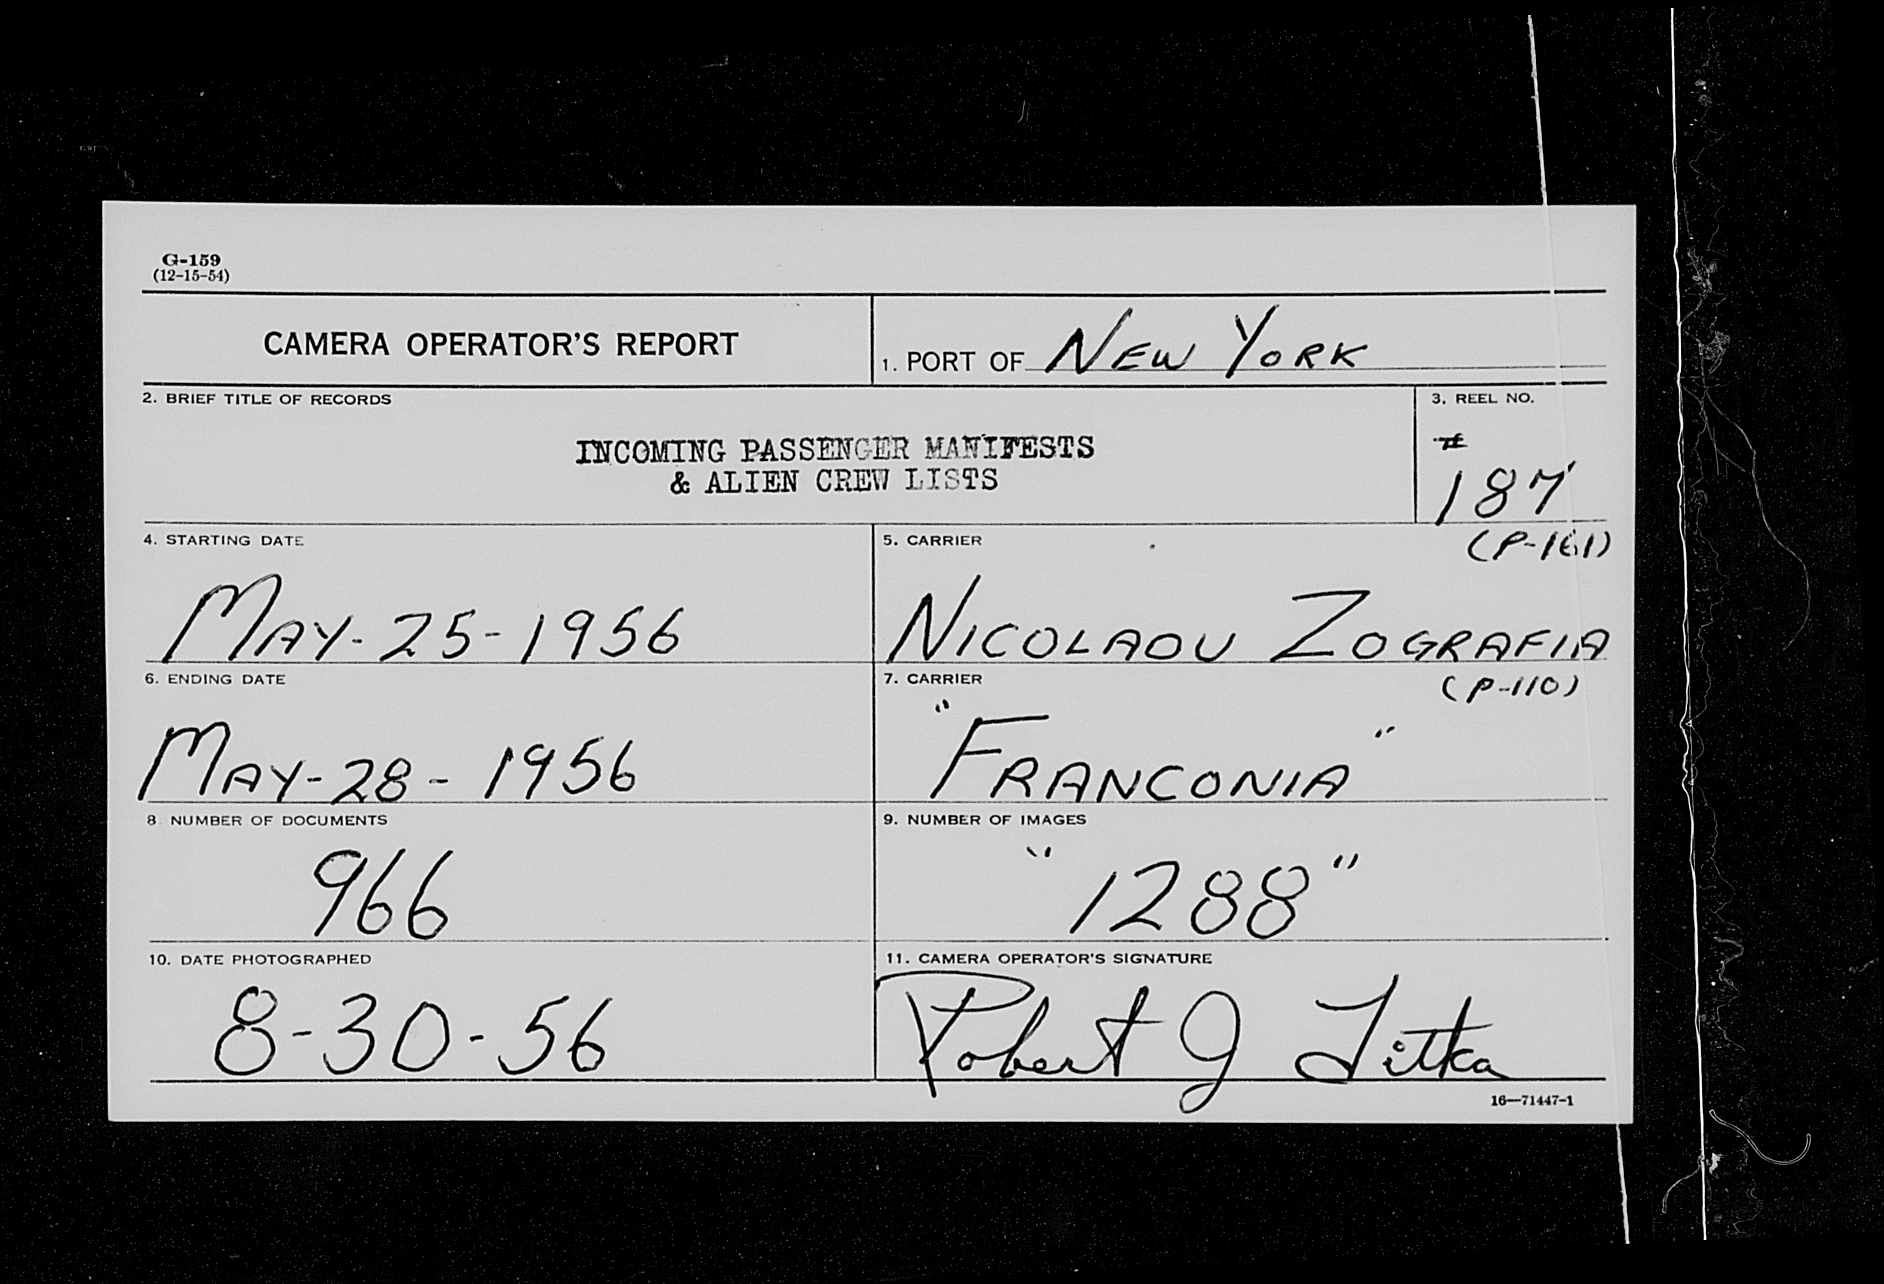 G-159
(12-15-54)
CAMERA OPERATOR'S REPORT
1. PORT OF NEW YORK
2. BRIEF TITLE OF RECORDS
INCOMING PASSENGER MANIFESTS
& ALIEN CREW LISTS
3. REEL NO.
#
187
4. STARTING DATE
MAY-25-1956
5. CARRIER
(P-161)
NICOLAOU ZOGRAFIA
6. ENDING DATE
MAY-28-1956
7. CARRIER
(P-110)
"FRANCONIA"
8 NUMBER OF DOCUMENTS
966
9. NUMBER OF IMAGES
"1288"
10. DATE PHOTOGRAPHED
8-30-56
11. CAMERA OPERATOR'S SIGNATURE
Robert J Litka
16—71447-1